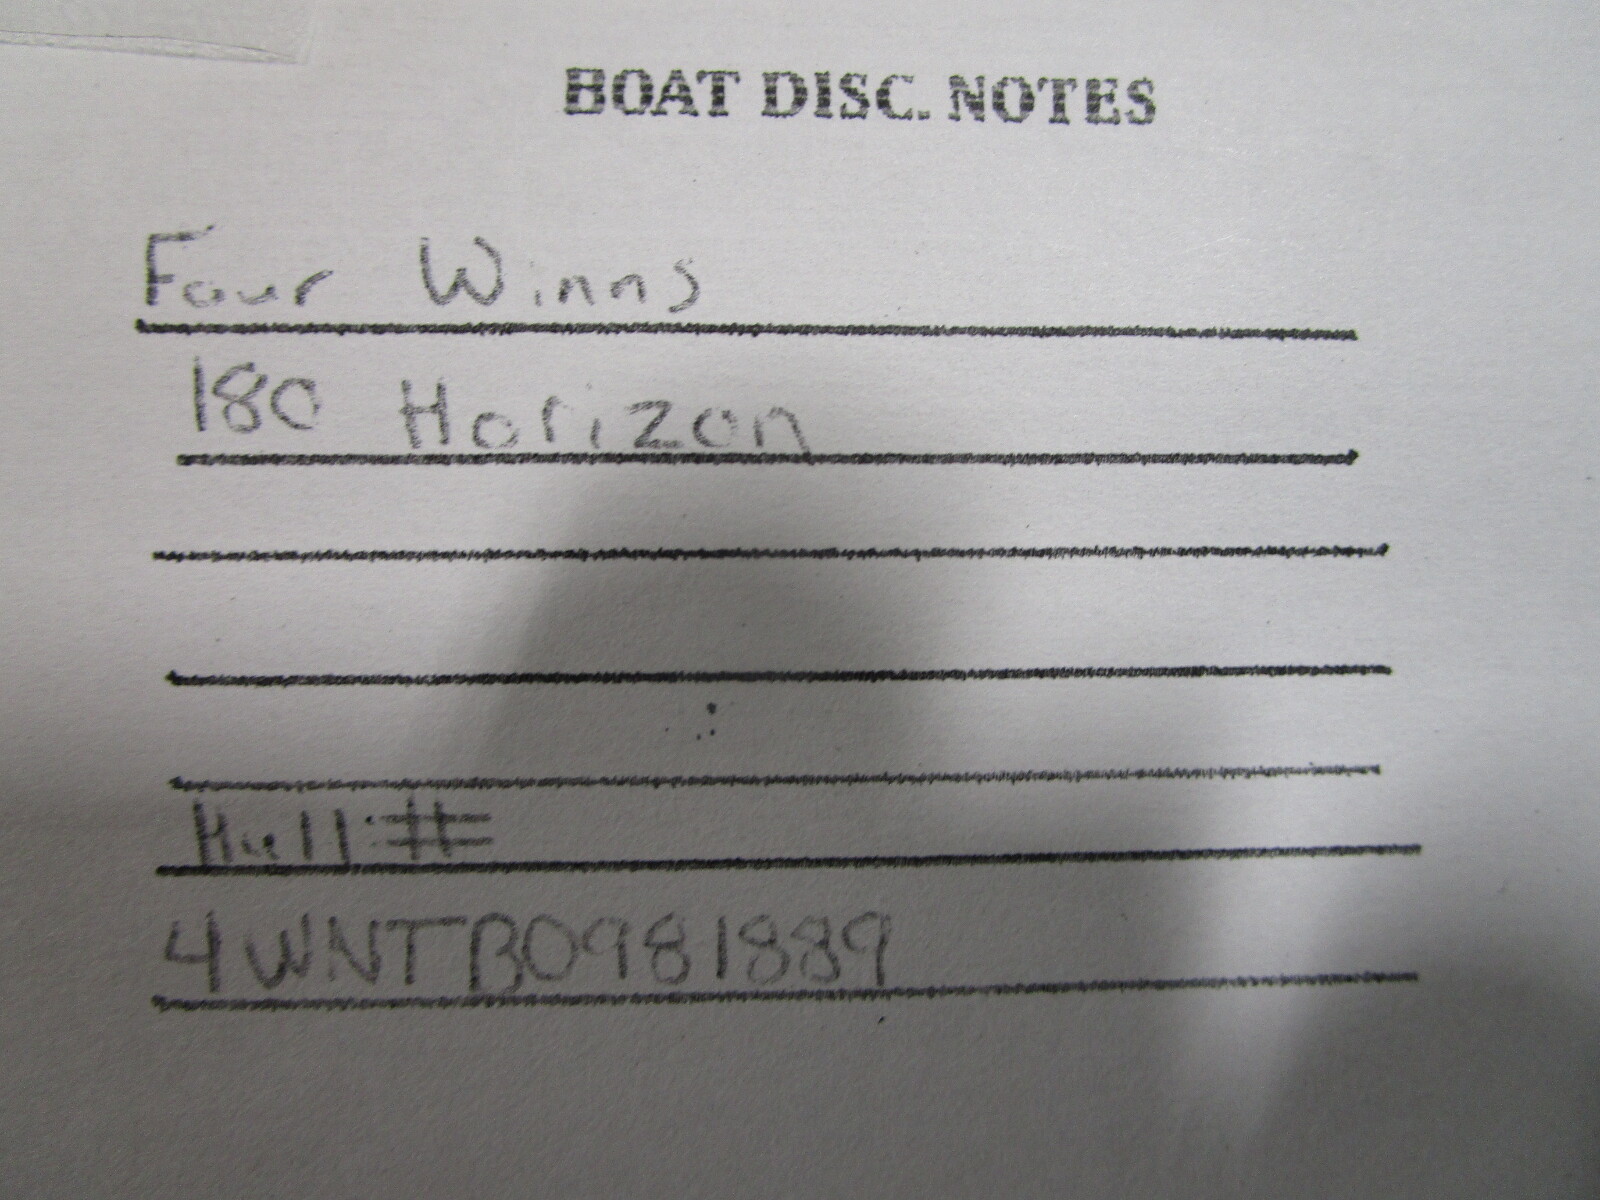 BOAT DISC. NOTES
Four Winns
180 Horizon
Hull:#
4WNTBO981889